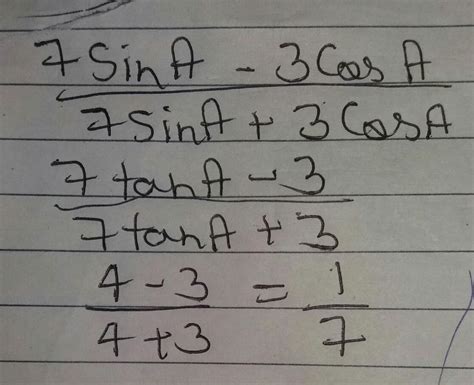 7 Sin A - 3 Cos A
7 Sin A + 3 Cos A
7 tan A - 3
7 tan A + 3
4 - 3 = 1
4 + 3 7